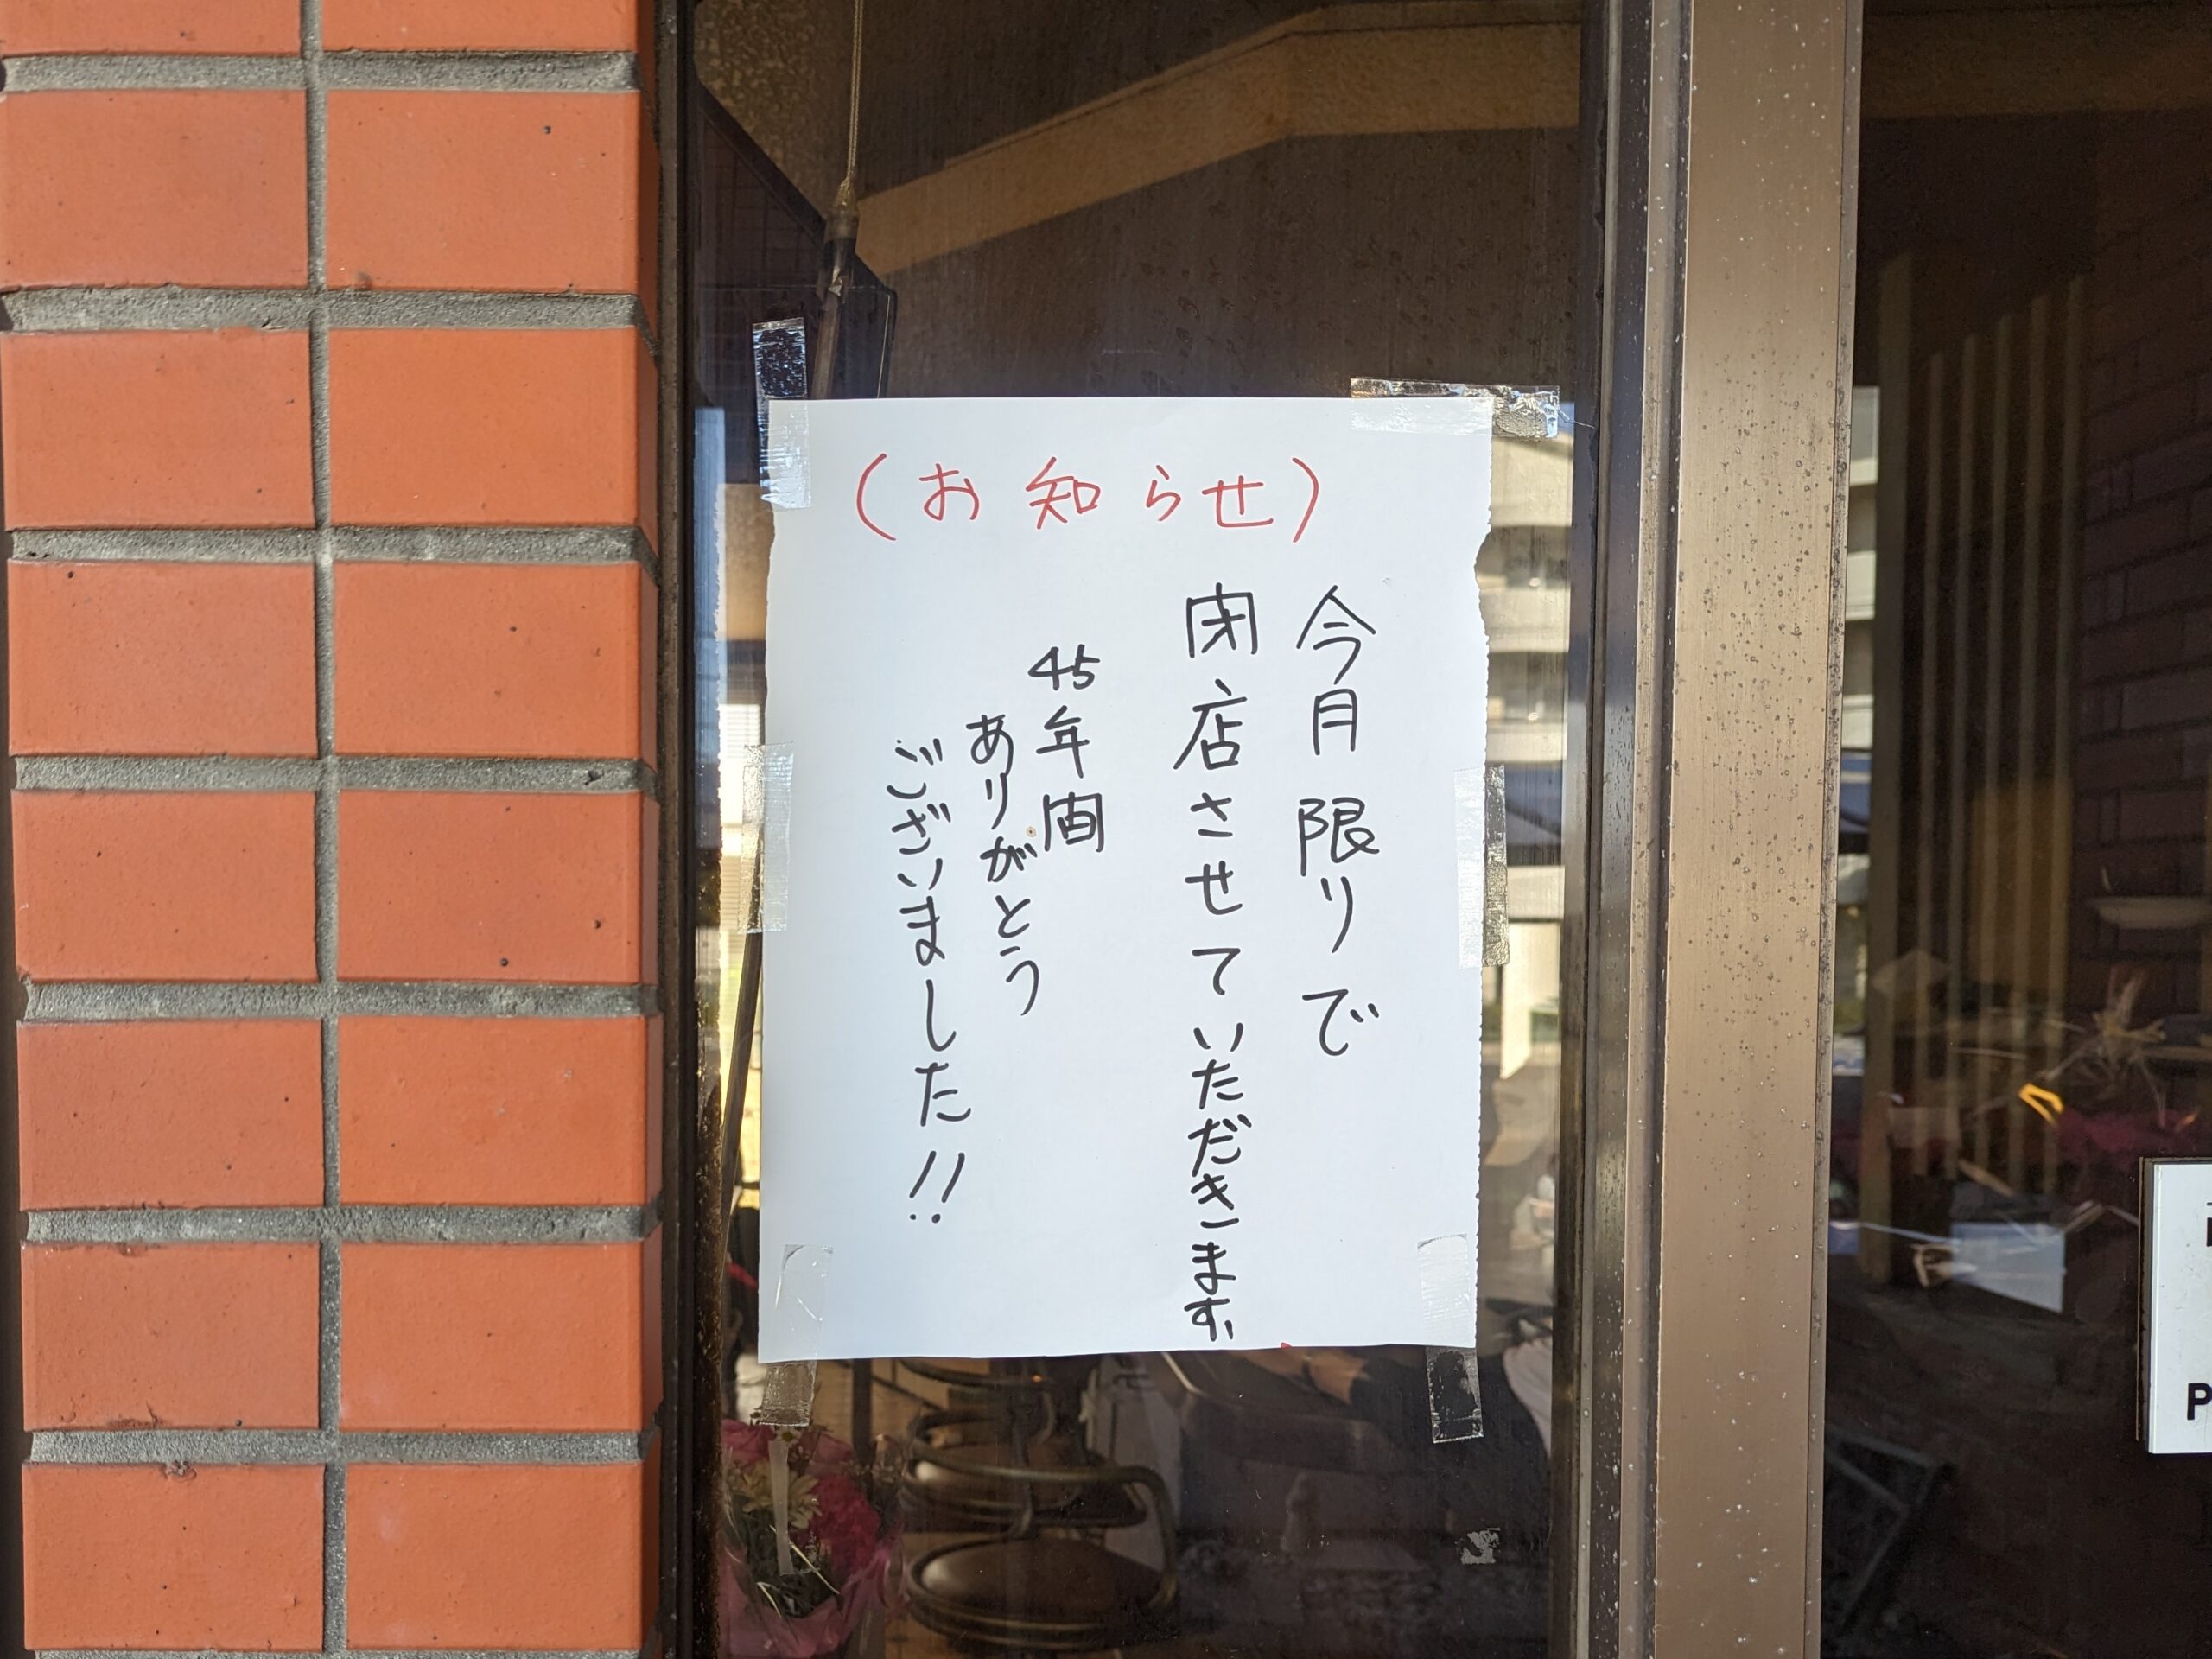 （お知らせ）
今月限りで
閉店させていただきます。
45年間
ありがとう
ございました!!
P